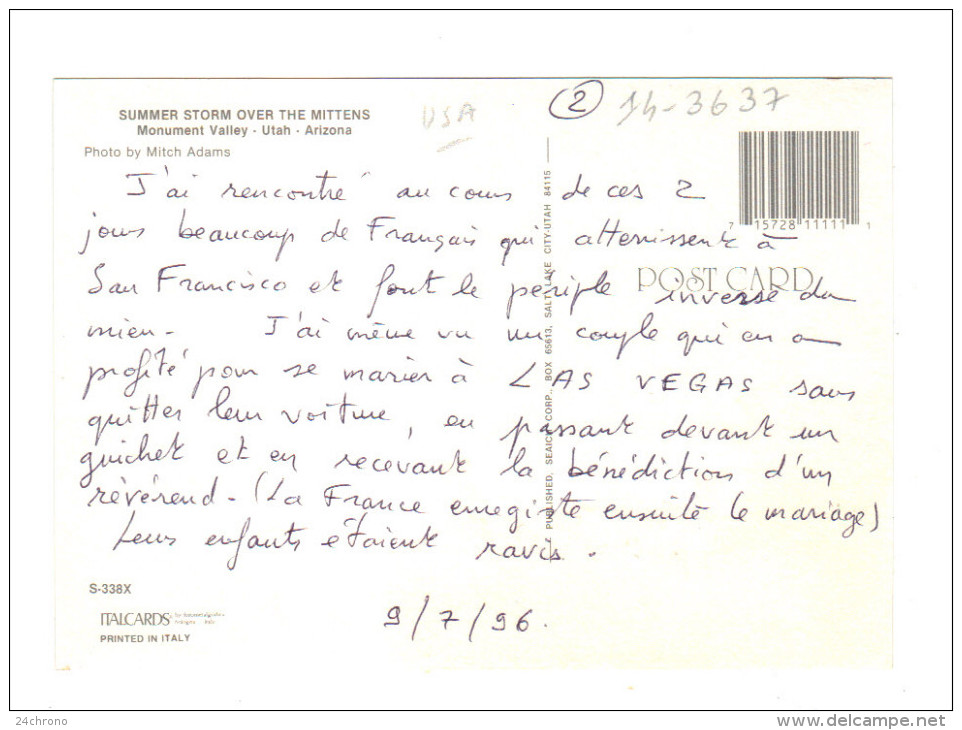 SUMMER STORM OVER THE MITTENS
Monument Valley - Utah - Arizona
Photo by Mitch Adams
USA
2 14-3637
7 15728 11111 1
POST CARD
J'ai rencontré au cours de ces 2
jours beaucoup de Français qui atterrissent à
San Francisco et font le périple inverse du
mien - J'ai même vu un couple qui en a
profité pour se marier à LAS VEGAS sans
quitter leur voiture, en passant devant un
guichet et en recevant la bénédiction d'un
révérend - (La France enregistre ensuite le mariage)
Leurs enfants étaient ravis.
9/7/96.
PUBLISHED, SEAICH CORP., BOX 65613, SALT LAKE CITY-UTAH 84115
S-338X
ITALCARDS
PRINTED IN ITALY
24chrono
www.delcampe.net